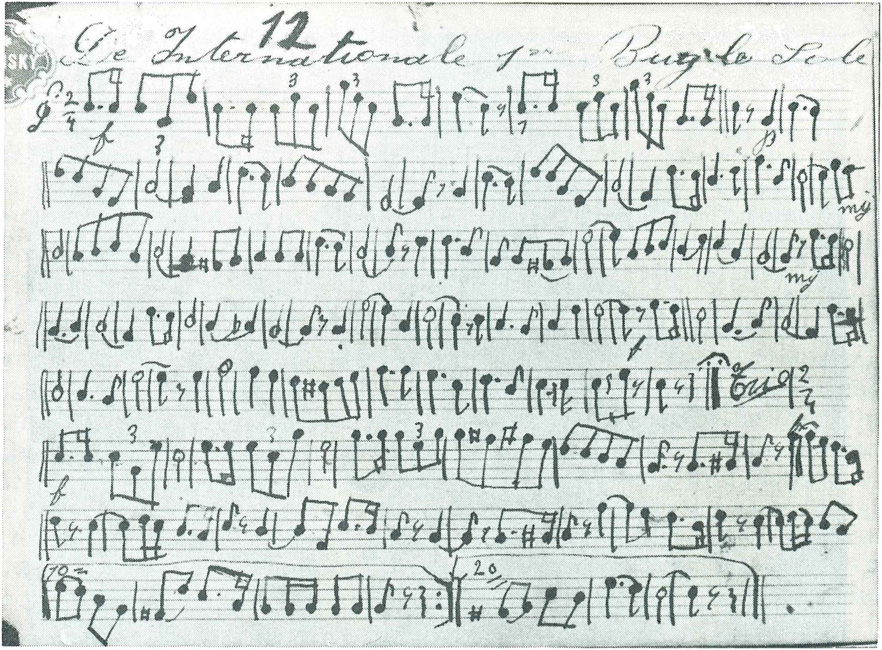 12
SKY
De Internationale 1ᵉ Bugle Solo
2/4 3 3 3 3
f p
3
mf
mf
f
Trio 2/4
3 3 3
f
1o 2o